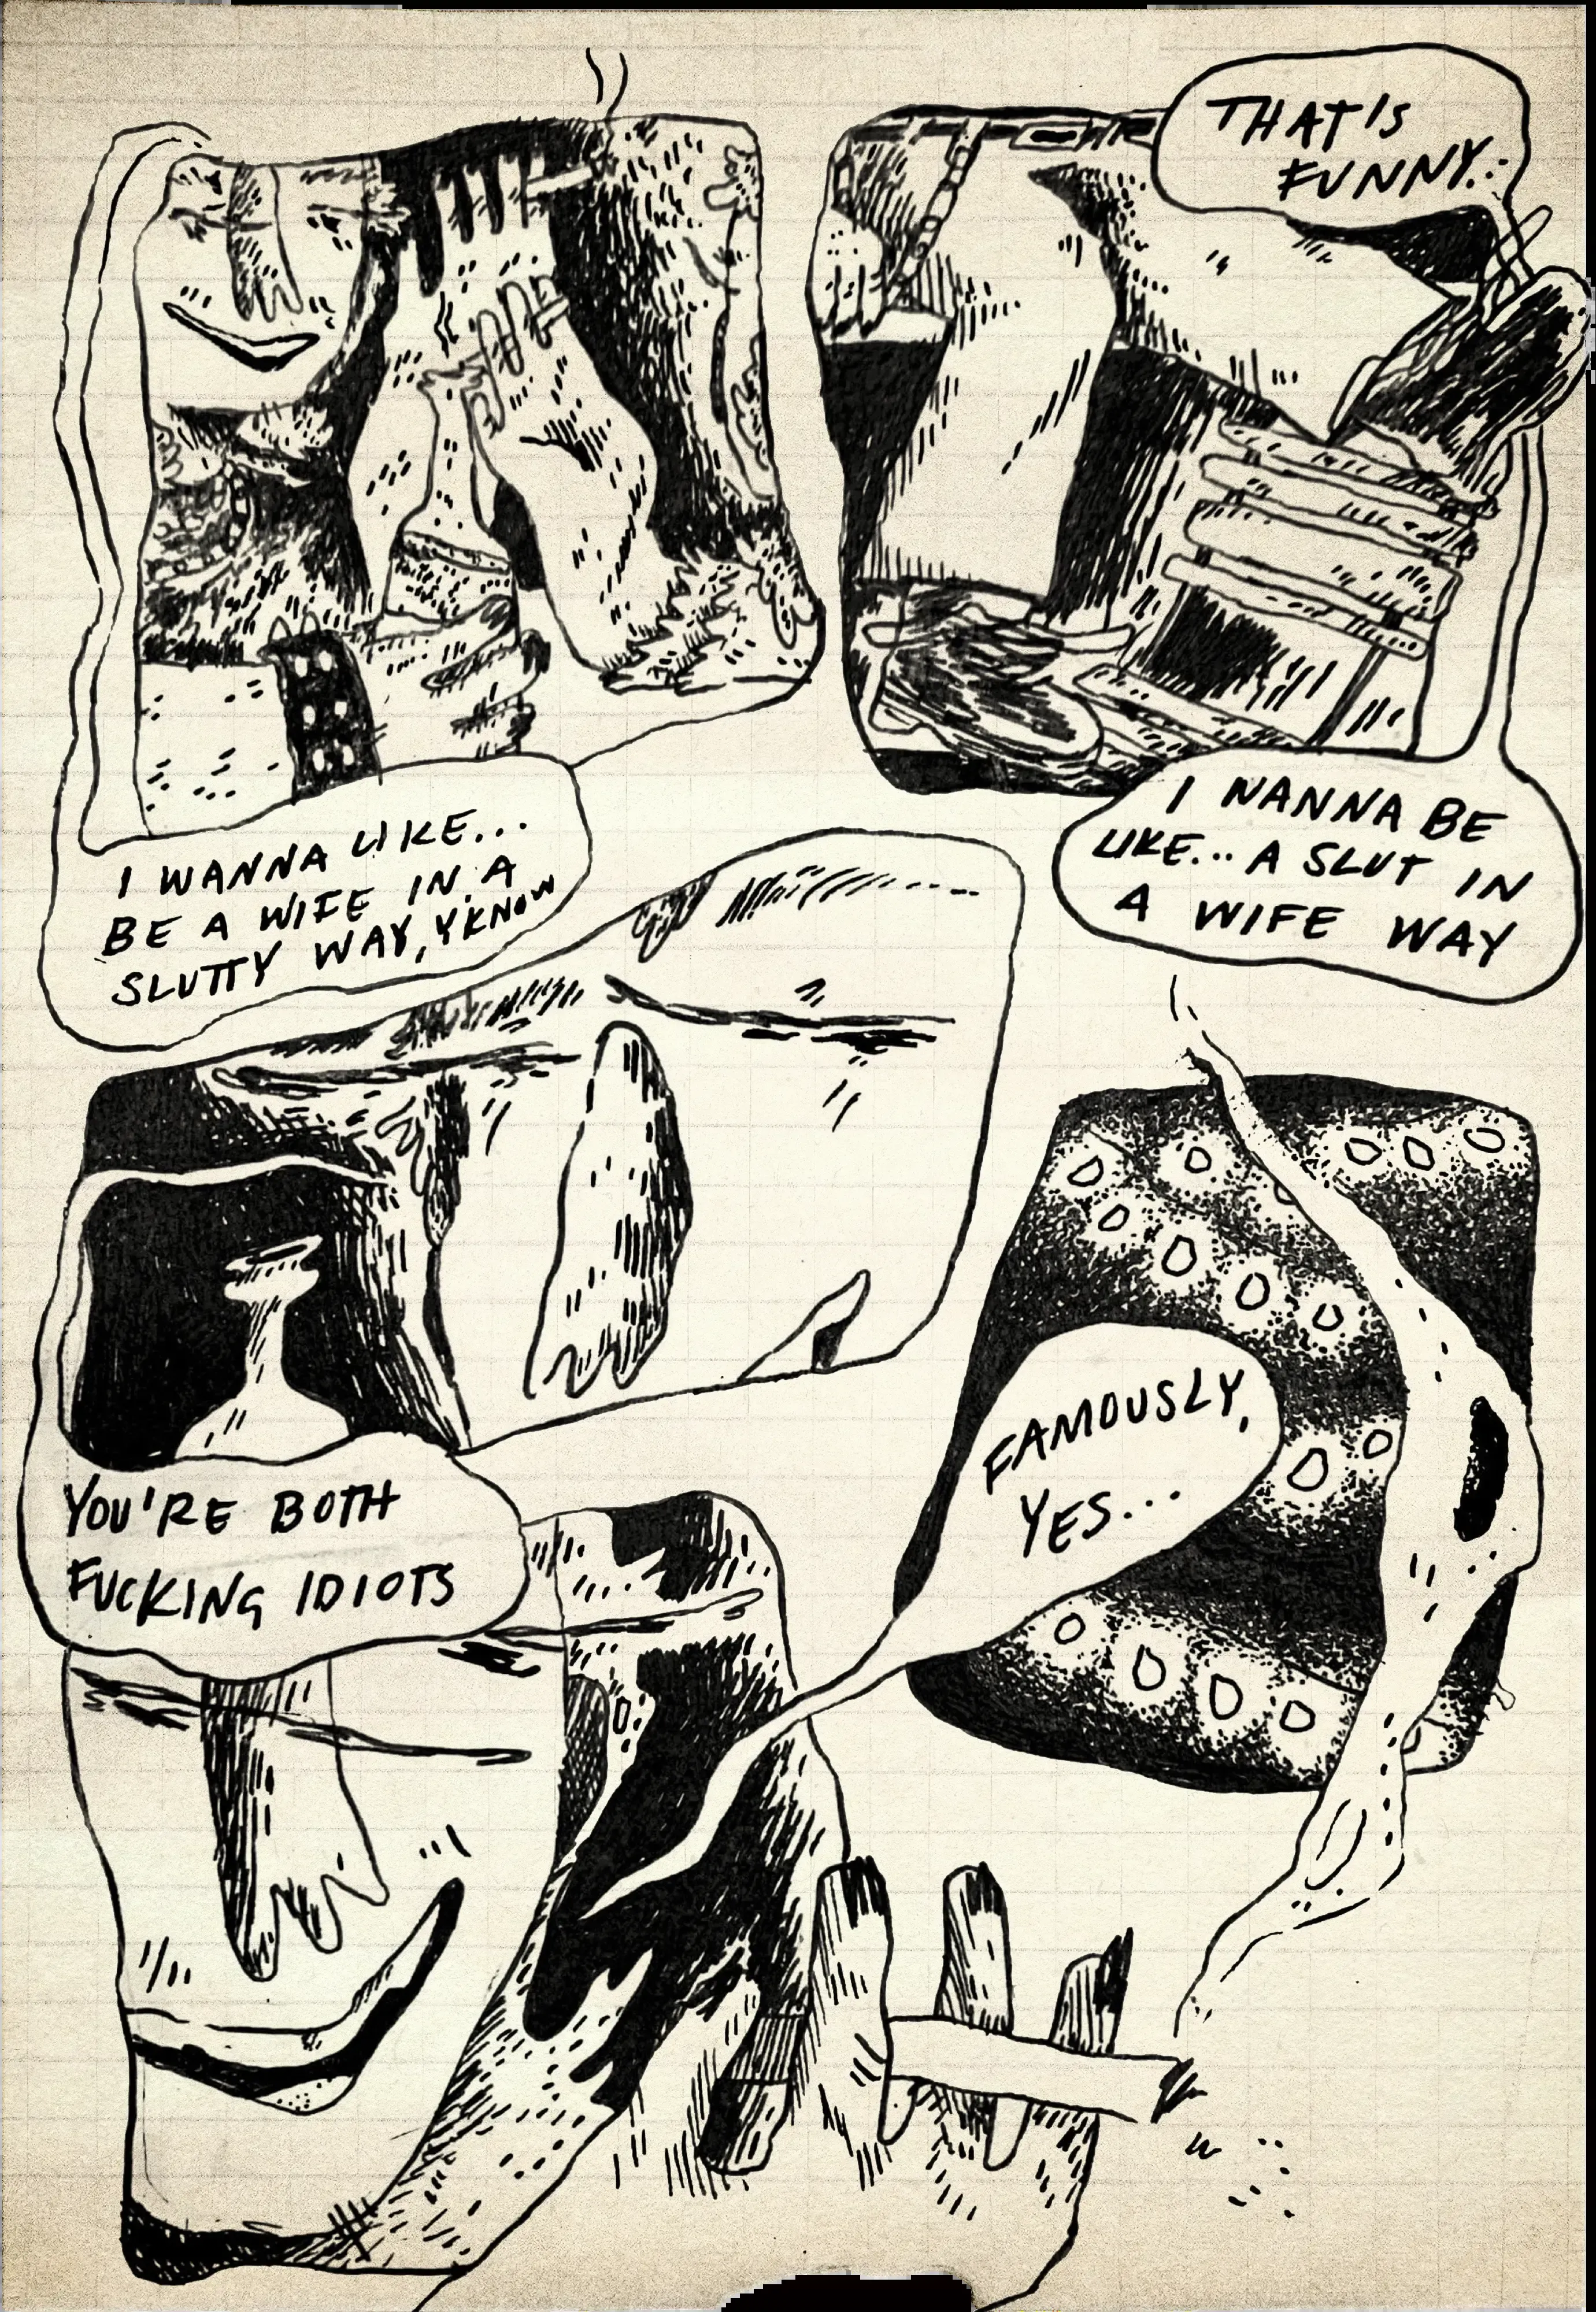 I WANNA LIKE...
BE A WIFE IN A
SLUTTY WAY, Y'KNOW
THAT'S
FUNNY...
I WANNA BE
LIKE... A SLUT IN
A WIFE WAY
YOU'RE BOTH
FUCKING IDIOTS
FAMOUSLY,
YES...